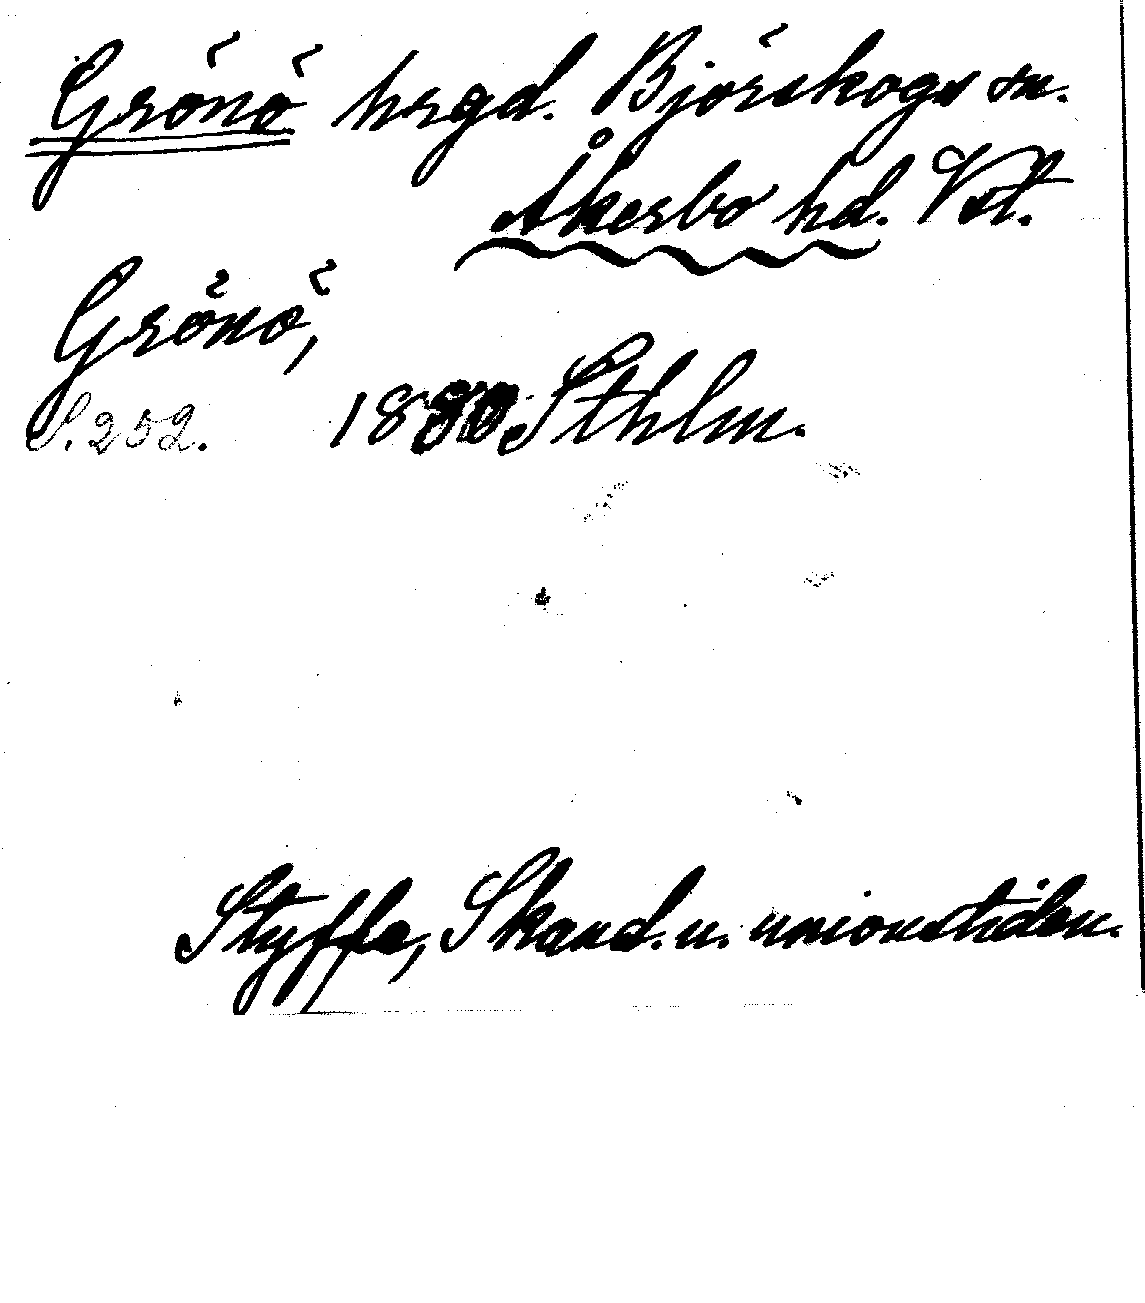 Grönö hrgd. Björskogs sn.
Åkerbo hd. Vstl.
Grönö,
S. 252. 1880 Sthlm.
Styffe, Skand. u. unionstiden.